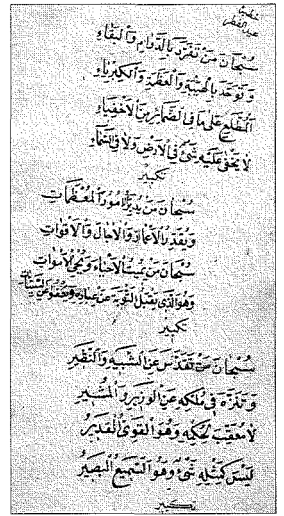 خطبة
عيد الفطر
سُبْحَانَ مَنْ تَفَرَّدَ بِالدَّوَامِ وَالْبَقَاءِ
وَتَوَحَّدَ بِالْهَيْبَةِ وَالْعَظَمَةِ وَالْكِبْرِيَاءِ
الْمُطَّلِعِ عَلَى مَا فِي الضَّمَائِرِ مِنَ الْأَخْفِيَاءِ
لَا يَخْفَى عَلَيْهِ شَيْءٌ فِي الْأَرْضِ وَلَا فِي السَّمَاءِ
تكبير
سُبْحَانَ مَنْ يُدَبِّرُ الْأُمُورَ الْمُعْظَمَاتِ
وَيُقَدِّرُ الْأَعْمَارَ وَالْآجَالَ وَالْأَقْوَاتِ
سُبْحَانَ مَنْ يُمِيتُ الْأَحْيَاءَ وَيُحْيِي الْأَمْوَاتِ
وَهُوَ الَّذِي يَقْبَلُ التَّوْبَةَ عَنْ عِبَادِهِ وَيَعْفُو عَنِ السَّيِّئَاتِ
تكبير
سُبْحَانَ مَنْ تَقَدَّسَ عَنِ الشَّبِيهِ وَالنَّظِيرِ
وَتَنَزَّهَ فِي مُلْكِهِ عَنِ الْوَزِيرِ وَالْمُشِيرِ
لَا مُعَقِّبَ لِحُكْمِهِ وَهُوَ الْقَوِيُّ الْقَدِيرُ
لَيْسَ كَمِثْلِهِ شَيْءٌ وَهُوَ السَّمِيعُ الْبَصِيرُ
تكبير